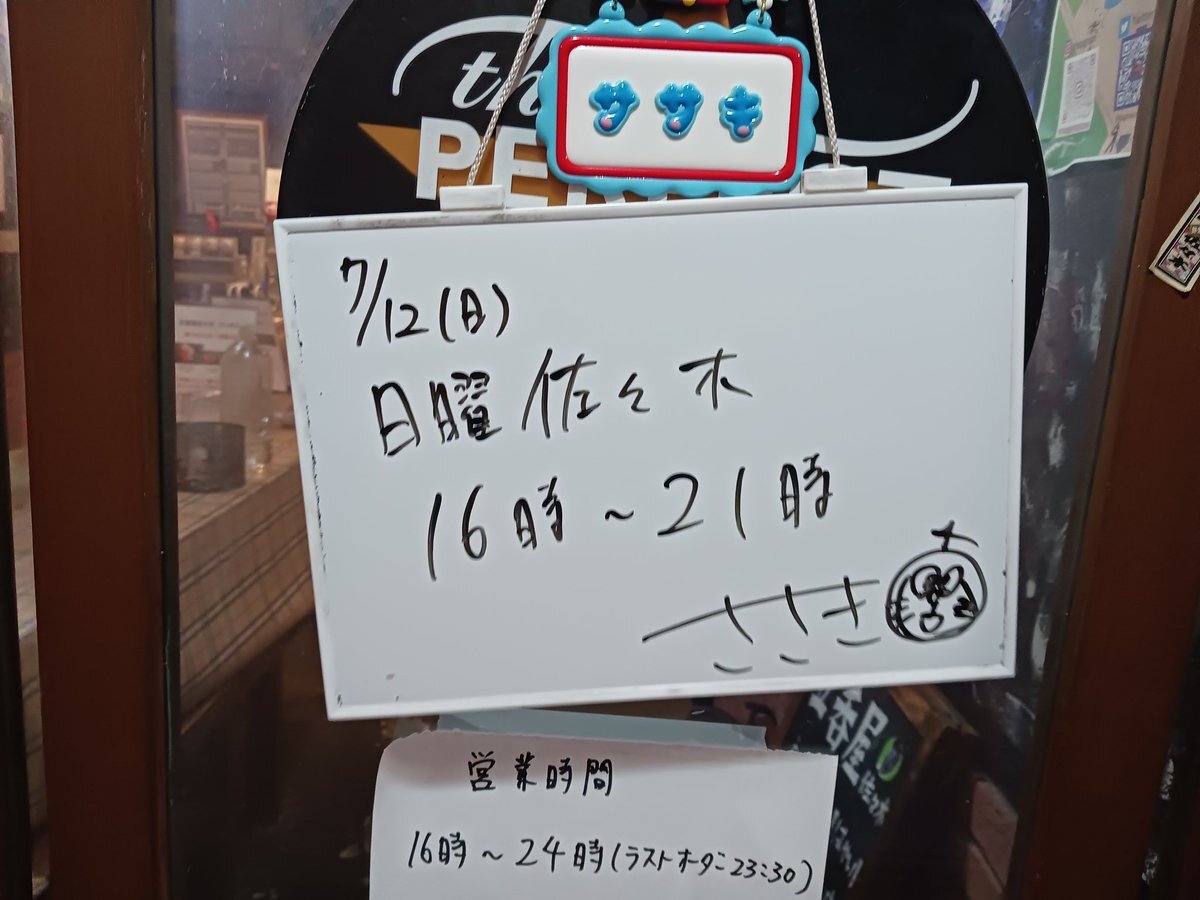 the
ササキ
7/12(日)
日曜 佐々木
16時～21時
ささき
営業時間
16時～24時(ラストオーダー23:30)
屋
佐々木